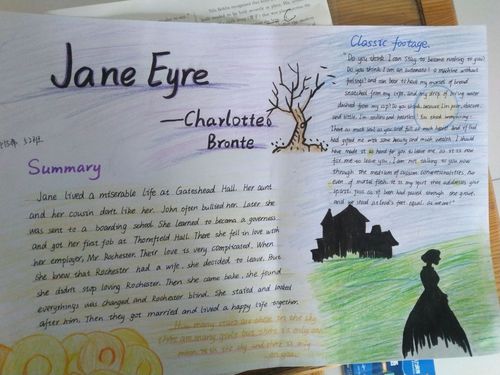 Jane Eyre
—Charlotte
Bronte
Summary
Jane lived a miserable life at Gateshead Hall. Her aunt
and her cousin don't like her. John often bullied her. Later she
was sent to a boarding school. She learned to become a governess
and got her first job at Thornfield Hall. There she fell in love with
her employer, Mr. Rochester. Their love is very complicated. When
she knew that Rochester had a wife, she decided to leave. But
she didn't stop loving Rochester. Then she came back, she found
everythings was changed and Rochester blind. She stayed and looked
after him. Then they got married and lived a happy life together.
How many stars are there on the sky
there are many girls but there is only one
moon in the sky and there is only
one you.
Classic footage.
"Do you think I can stay to become nothing to you?
Do you think I am an automaton? a machine without
feelings? and can bear to have my morsel of bread
snatched from my lips, and my drop of living water
dashed from my cup? Do you think, because I'm poor, obscure,
and little, I'm soulless and heartless? You think wrong!
I have as much soul as you and full as much heart! And if God
had gifted me with some beauty and much wealth, I should
have made it as hard for you to leave me, as it is now
for me to leave you. I am not talking to you now
through the medium of custom conventionalities, nor
even of mortal flesh. it is my spirit that addresses your
spirit; just as if both had passed through the grave,
and we stood at God's feet equal, as we are!"